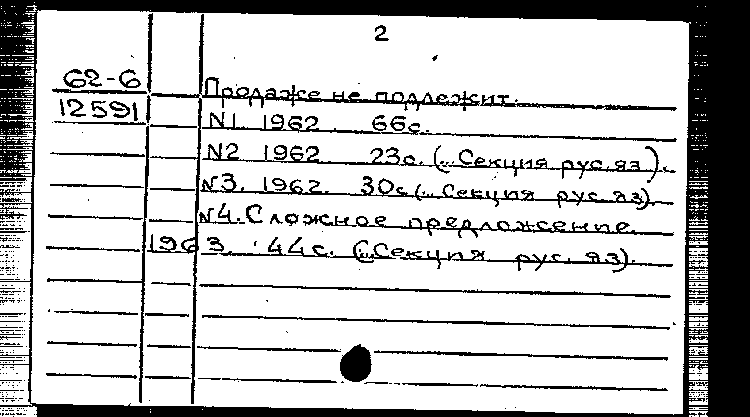 2
62-6
Продаже не подлежит.
12591
N1. 1962 66с.
N2 1962 23с. (...Секция рус.яз).
N3. 1962. 30с (... Секция рус яз).
N4. Сложное предложение.
1963. 44с. (...Секция рус. яз).